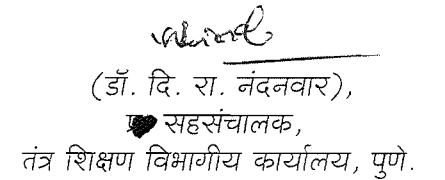 (डॉ. दि. रा. नंदनवार),
सहसंचालक,
तंत्र शिक्षण विभागीय कार्यालय, पुणे.